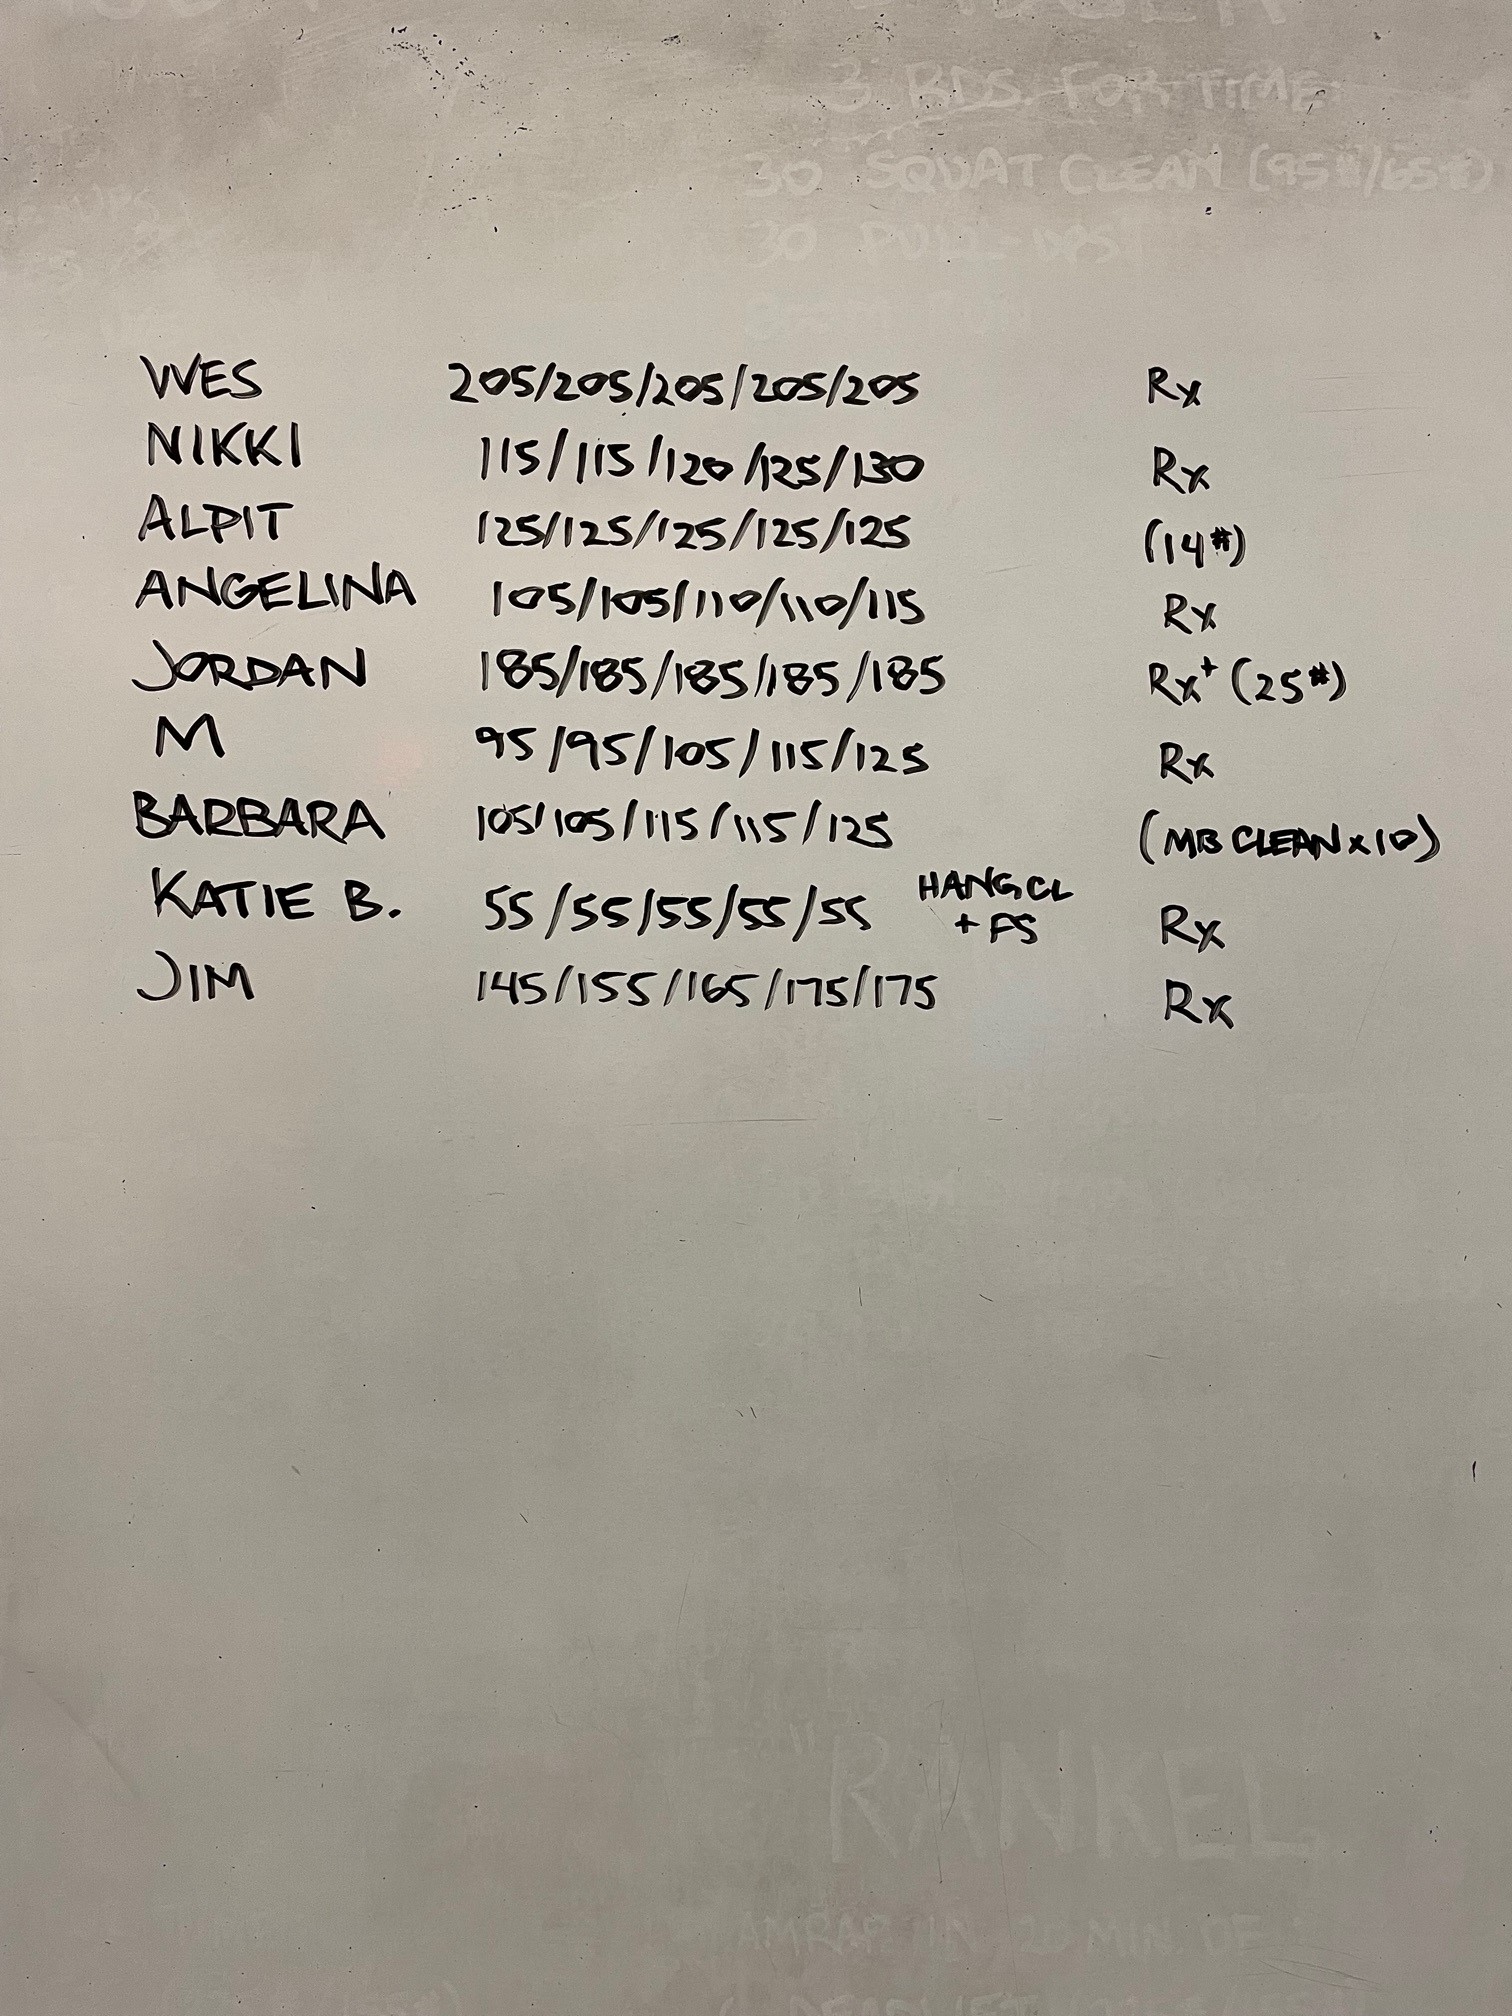 3 RDS. FOR TIME
30 SQUAT CLEAN (95#/65#)
30 PULL-UPS
WES 205/205/205/205/205 Rx
NIKKI 115/115/120/125/130 Rx
ALPIT 125/125/125/125/125 (14#)
ANGELINA 105/105/110/110/115 Rx
JORDAN 185/185/185/185/185 Rx+ (25#)
M 95/95/105/115/125 Rx
BARBARA 105/105/115/115/125 (MB CLEAN x 10)
KATIE B. 55/55/55/55/55 HANG CL + FS Rx
JIM 145/155/165/175/175 Rx
"RANKEL
AMRAP IN 20 MIN. OF
DEADLIFT